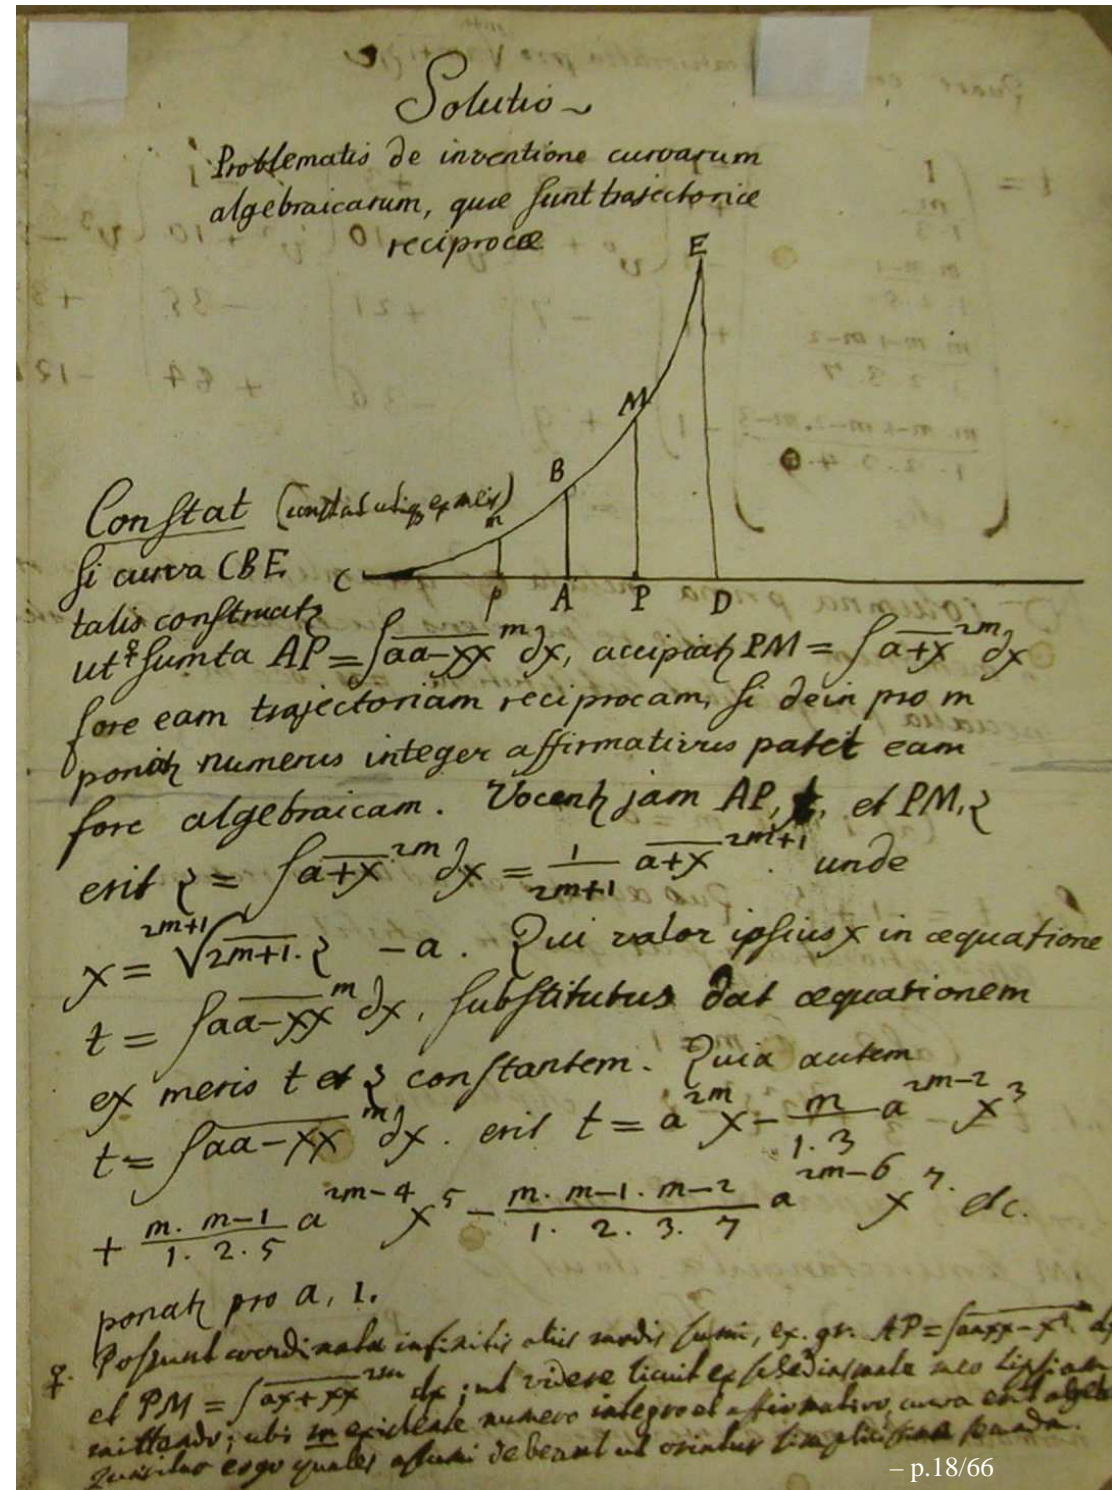 Solutio
Problematis de inventione curvarum
algebraicarum, quæ sunt trajectoriæ
reciprocæ
E
M
B
m
Constat (constat utiq ex meis)
si curva CBE
C
p A P D
talis construatz
ut ♀ sumta AP = ∫aa-xx^m dx, accipiatz PM = ∫a+x^2m dx
fore eam trajectoriam reciprocam, si dein pro m
ponatz numerus integer affirmativus patet eam
fore algebraicam. Vocentz jam AP, t, et PM, z
erit z = ∫a+x^2m dx = 1/2m+1 a+x^2m+1 . unde
x = 2m+1√2m+1. z - a . Qui valor ipsius x in æquatione
t = ∫aa-xx^m dx, substitutus dat æquationem
ex meris t et z constantem. Quia autem
t = ∫aa-xx^m dx. erit t = a^2m x - m/1.3 a^2m-2 x^3
+ m. m-1/1. 2. 5 a^2m-4 x^5 - m. m-1. m-2/1. 2. 3. 7 a^2m-6 x^7. etc.
ponatz pro a, 1.
♀. Possunt coordinatæ infinitis aliis modis sumi, ex. gr. AP = ∫aaxx-x^4
et PM = ∫ax+xx^2m dx; ut videre licuit ex schediasmate meo
mittendo; ubi m existente numero integro et affirmativo, curva erit
Quæritur ergo quales assumi debeant ut oriatur simplicissima
– p.18/66